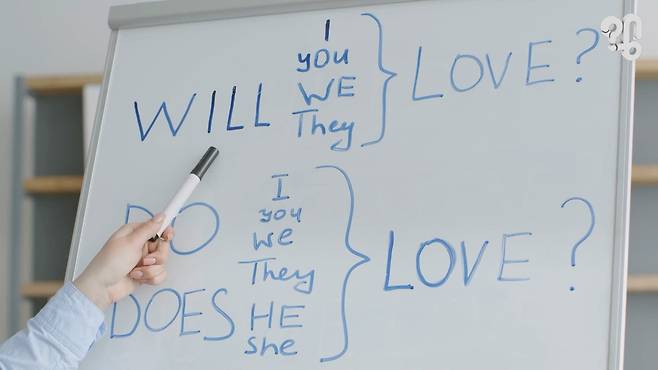 I
you
WILL WE LOVE?
They
I
DO you
we
They LOVE?
DOES HE
she